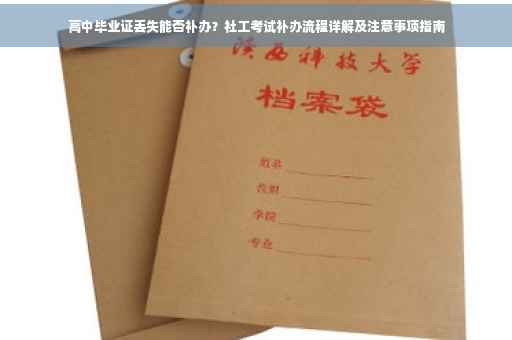 高中毕业证丢失能否补办？社工考试补办流程详解及注意事项指南
陕西科技大学
档案袋
姓名
学院
专业